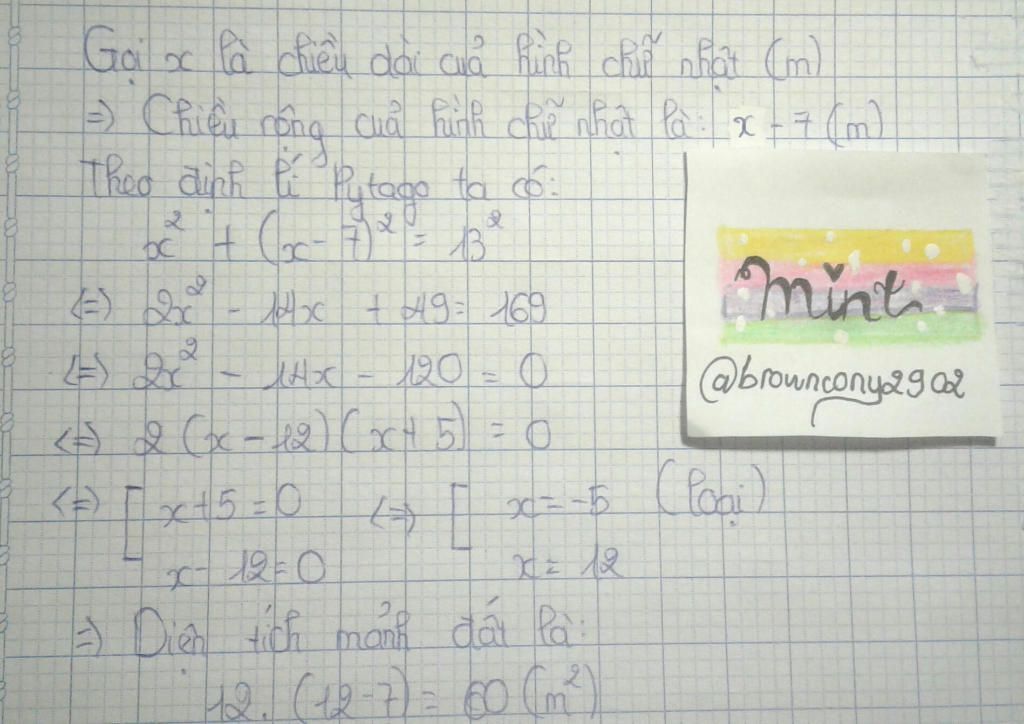 Gọi x là chiều dài cuả hình chữ nhật (m)
=) Chiều rộng cuả hình chữ nhật là: x - 7 (m)
Theo định lí Pytago ta có:
x² + (x - 7)² = 13²
(=) 2x² - 14x + 49 = 169
(=) 2x² - 14x - 120 = 0
(=) 2 (x - 12) (x + 5) = 0
(=) [ x + 5 = 0 (=) [ x = -5 (loại)
x - 12 = 0 x = 12
=) Diện tích mảnh đất là:
12. (12 - 7) = 60 (m²)
mint
@browncony2902